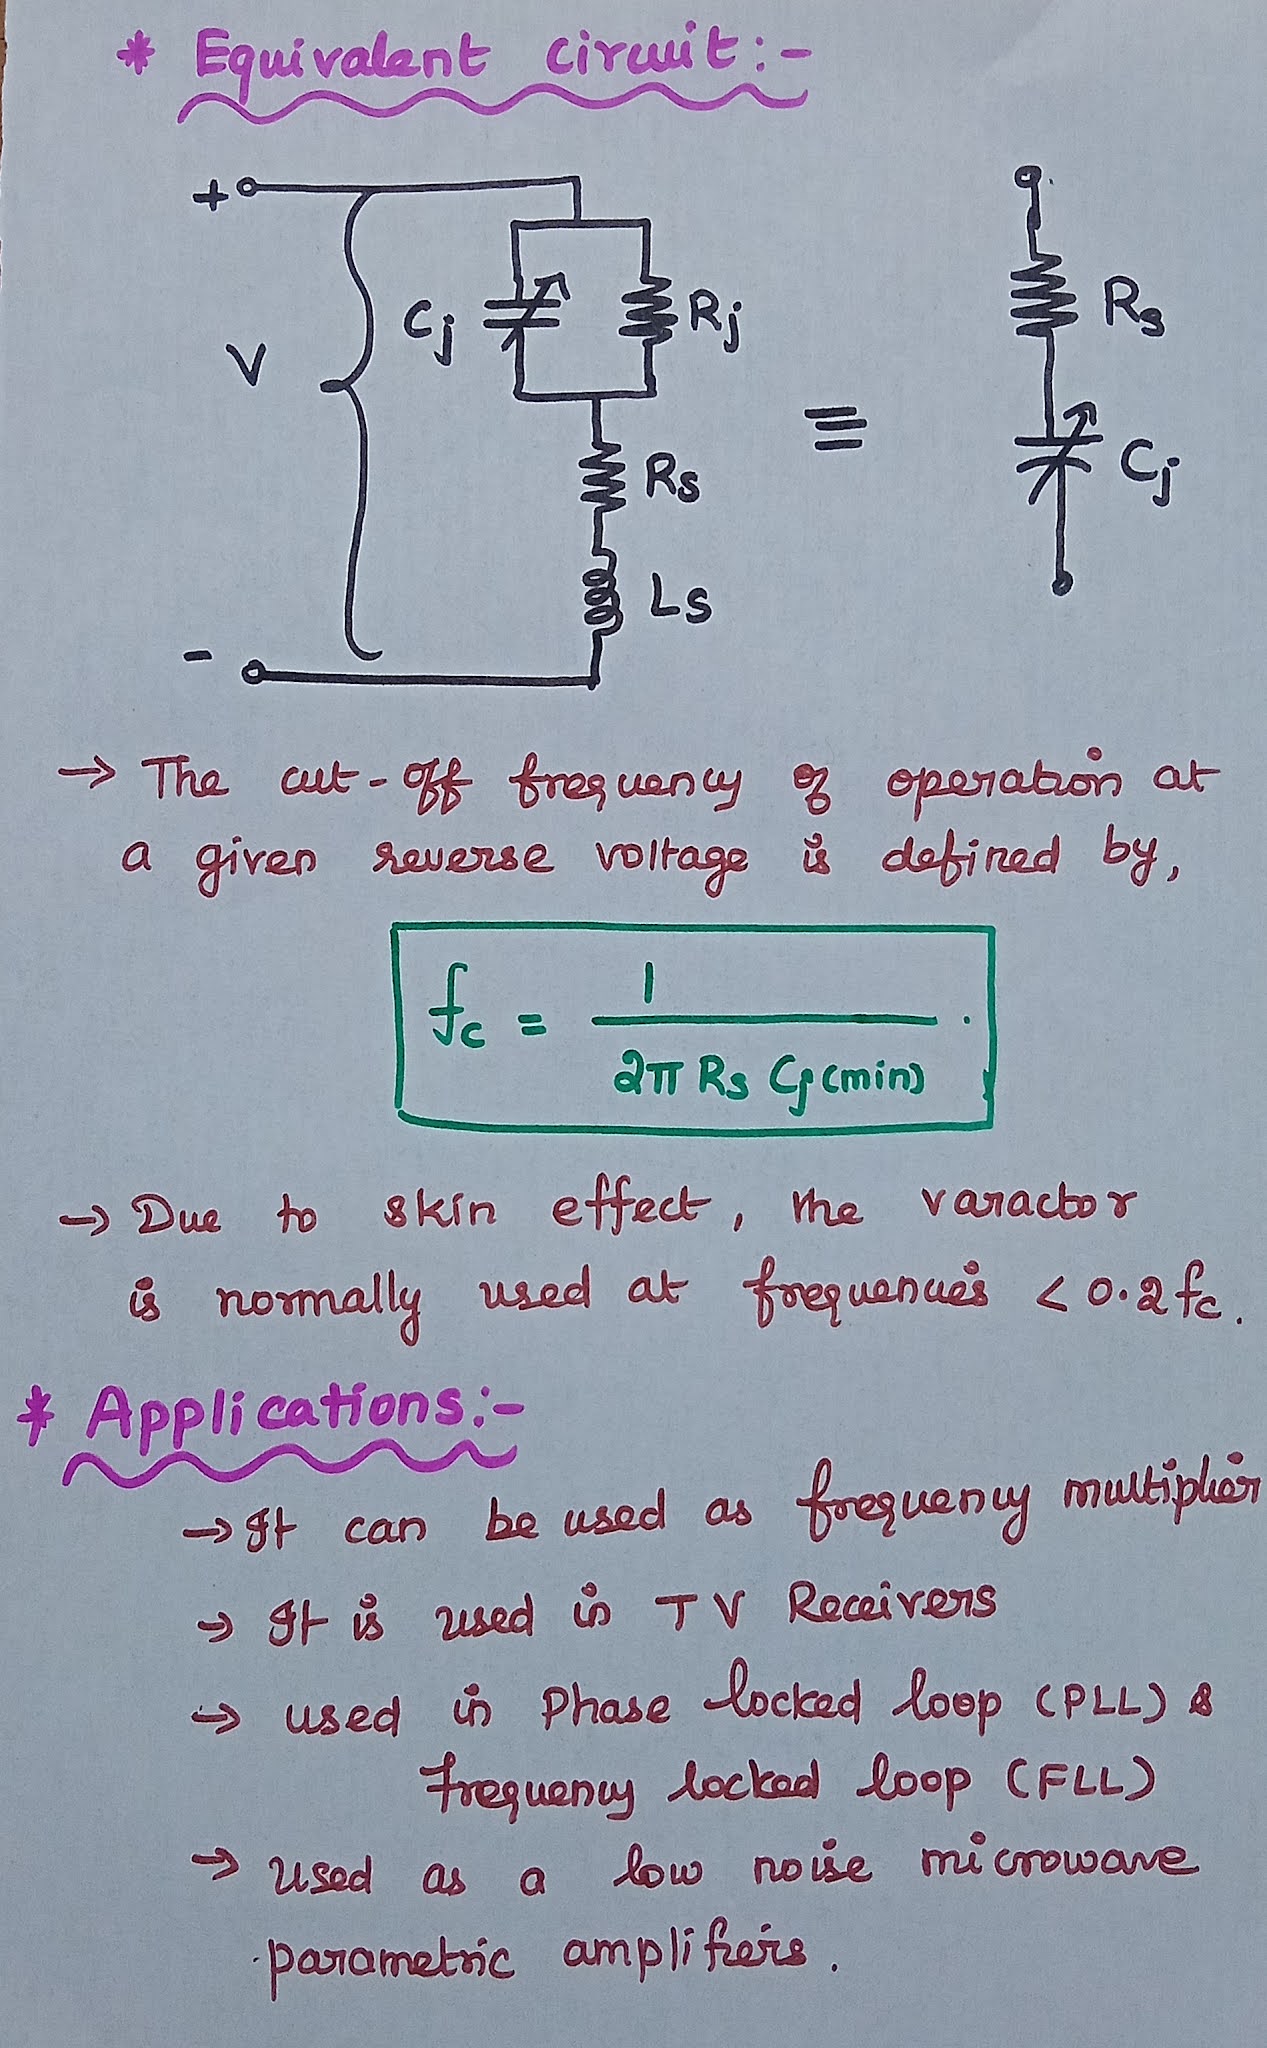 * Equivalent circuit:-
+
V
Cj
Rj
Rs
Ls
-
≡
Rs
Cj
→ The cut-off frequency of operation at
a given reverse voltage is defined by,
fc = 1 / 2π Rs Cj(min) .
→ Due to skin effect, the varactor
is normally used at frequencies < 0.2 fc.
* Applications:-
→ It can be used as frequency multiplier
→ It is used in TV Receivers
→ used in Phase locked loop (PLL) &
frequency locked loop (FLL)
→ used as a low noise microwave
parametric amplifiers.